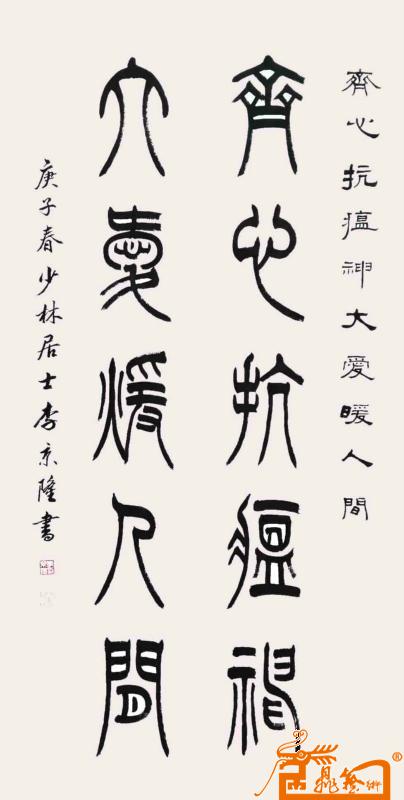 齊心抗瘟神大愛暖人間
齊心抗瘟神
大愛煖人間
庚子春少林居士李京隆書